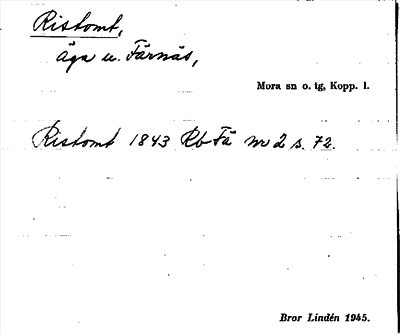 Ristomt,
äga u. Färnäs,
Mora sn o. tg, Kopp. l.
Ristomt 1843 Rb Fä nr 2 s. 72.
Bror Lindén 1945.